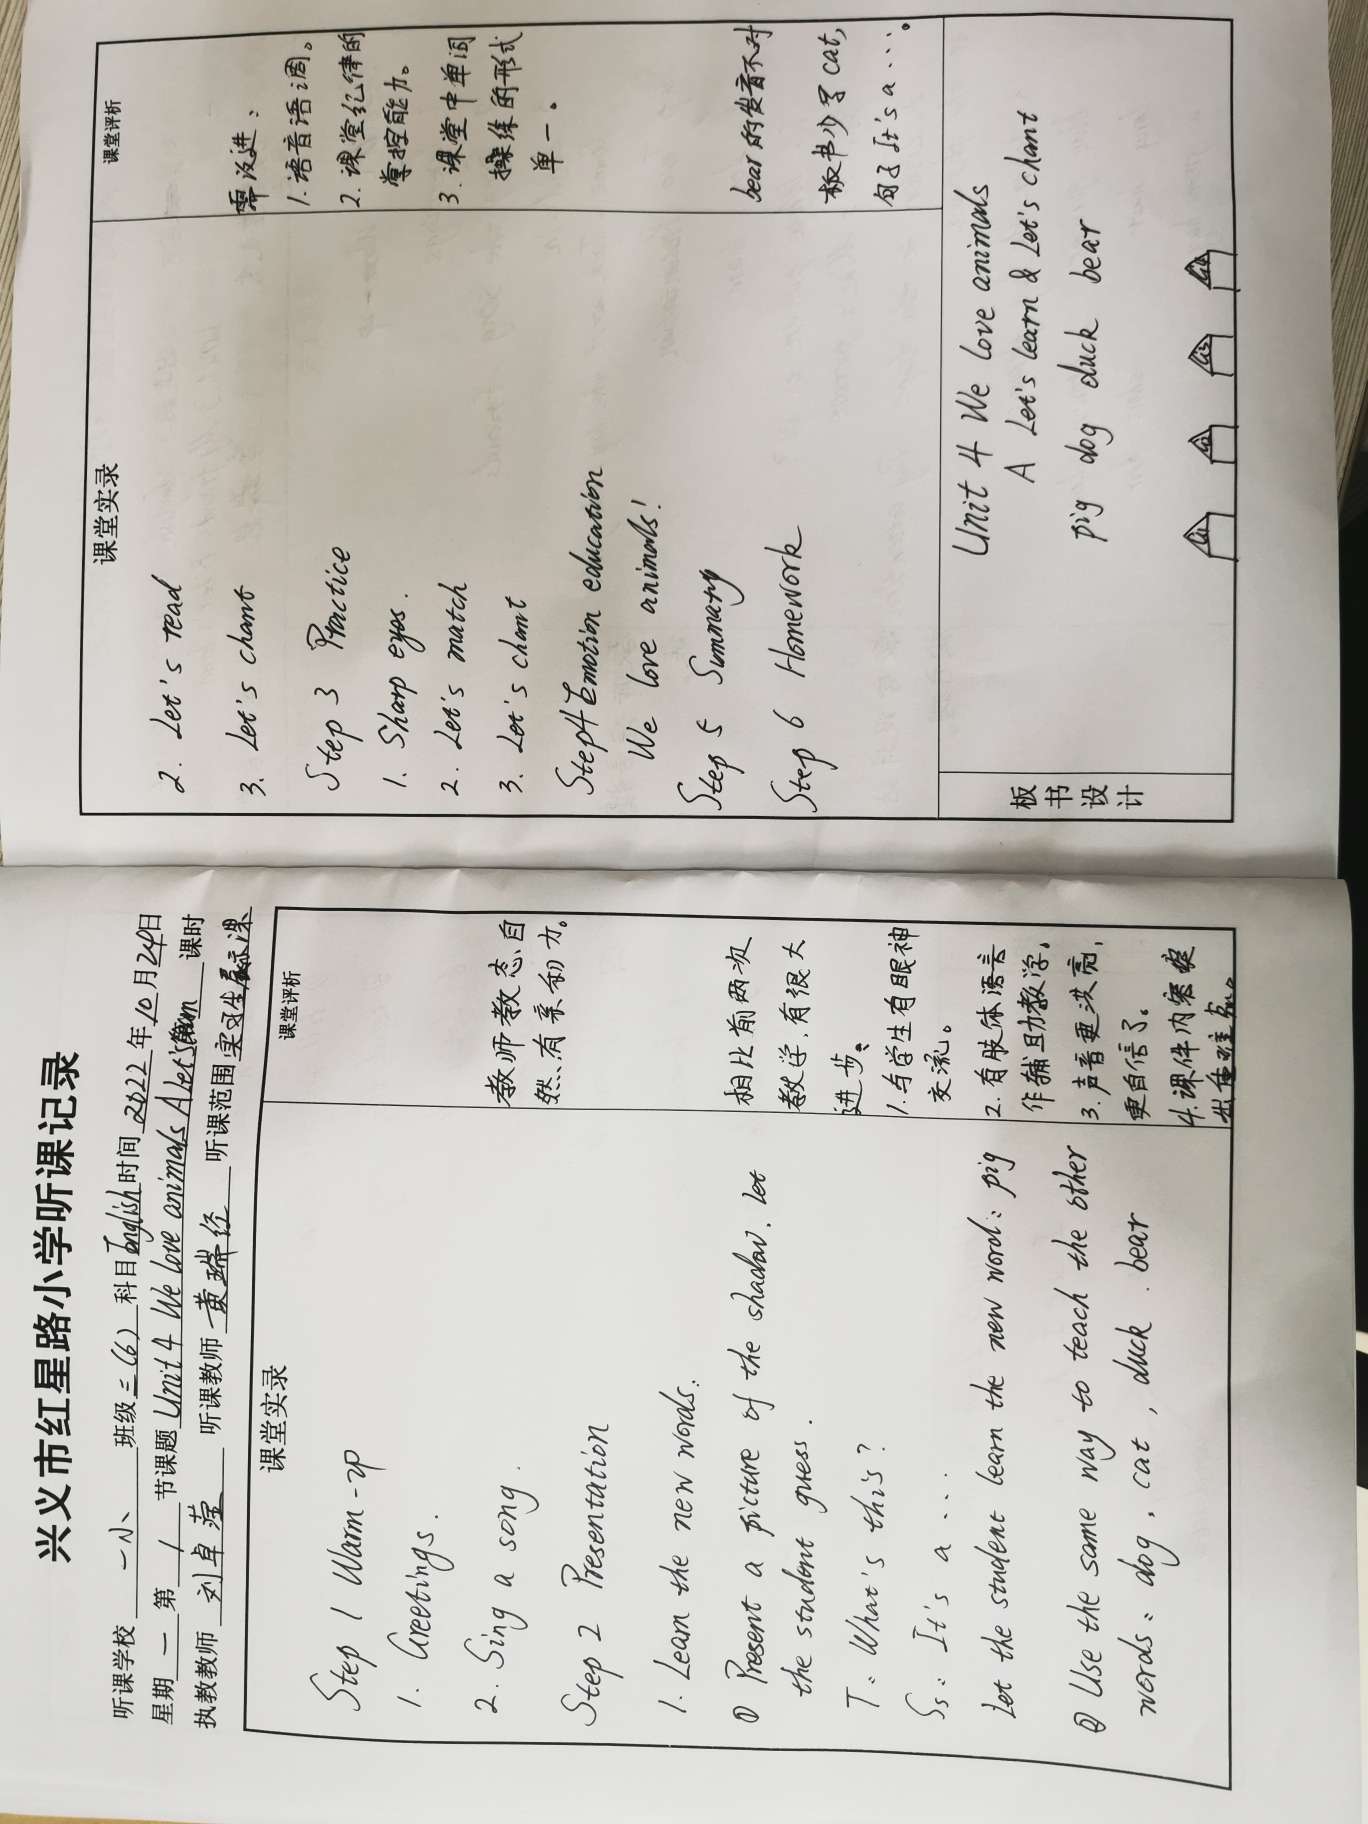 兴义市红星路小学听课记录
听课学校 一小 班级 三(6) 科目 English 时间 2022 年 10 月 24 日
星期 一 第 1 节课题 Unit 4 We love animals A Let's learn 课时
执教教师 刘卓萱 听课教师 黄瑞经 听课范围 实习生展示课
课堂实录
课堂评析
Step 1 Warm-up
1. Greetings.
2. Sing a song.
Step 2 Presentation
1. Learn the new words.
① Present a picture of the shadow. let
the student guess.
T: What's this?
Ss: It's a ...
Let the student learn the new word: pig
② Use the same way to teach the other
words: dog, cat, duck. bear
教师教态自
然、有亲和力。
相比前两次
教学,有很大
进步、
1.与学生有眼神
交流。
2.有肢体语言
作辅助教学。
3.声音更洪亮,
更自信了。
4.课件内容突
出重难点。
课堂实录
课堂评析
2. Let's read
3. Let's chant
Step 3 Practice
1. Sharp eyes.
2. Let's match
3. Let's chant
Step4 Emotion education
We love animals!
Step 5 Summary
Step 6 Homework
需改进:
1.语音语调。
2.课堂纪律的
掌控能力。
3.课堂中单词
操练的形式
单一。
bear的发音不对
板书少写cat,
句子It's a ...。
板书设计
Unit 4 We love animals
A Let's learn & Let's chant
pig dog duck bear